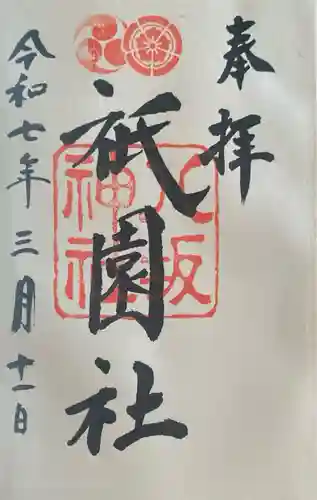 奉拝
八坂
神社
祇園社
令和七年三月十一日